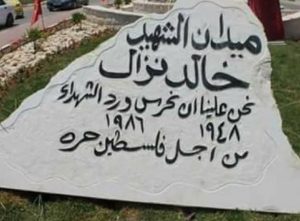 ميدان الشهيد
خالد نزال
نحن علينا ان نحرس ورد الشهداء
١٩٤٨ ١٩٨٦
من اجل فلسطين حره